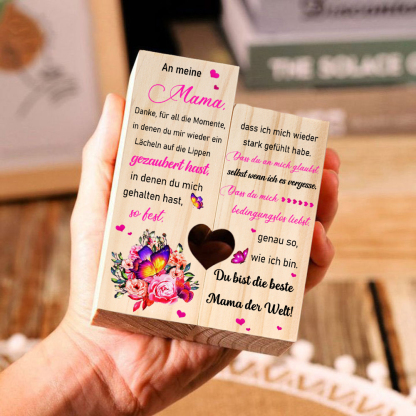 An meine
Mama,
Danke, für all die Momente,
in denen du mir wieder ein
Lächeln auf die Lippen
gezaubert hast,
in denen du mich
gehalten hast,
so fest,
dass ich mich wieder
stark gefühlt habe.
Dass du an mich glaubst,
selbst wenn ich es vergesse.
Dass du mich
bedingungslos liebst,
genau so,
wie ich bin.
Du bist die beste
Mama der Welt!
THE SOLACE O